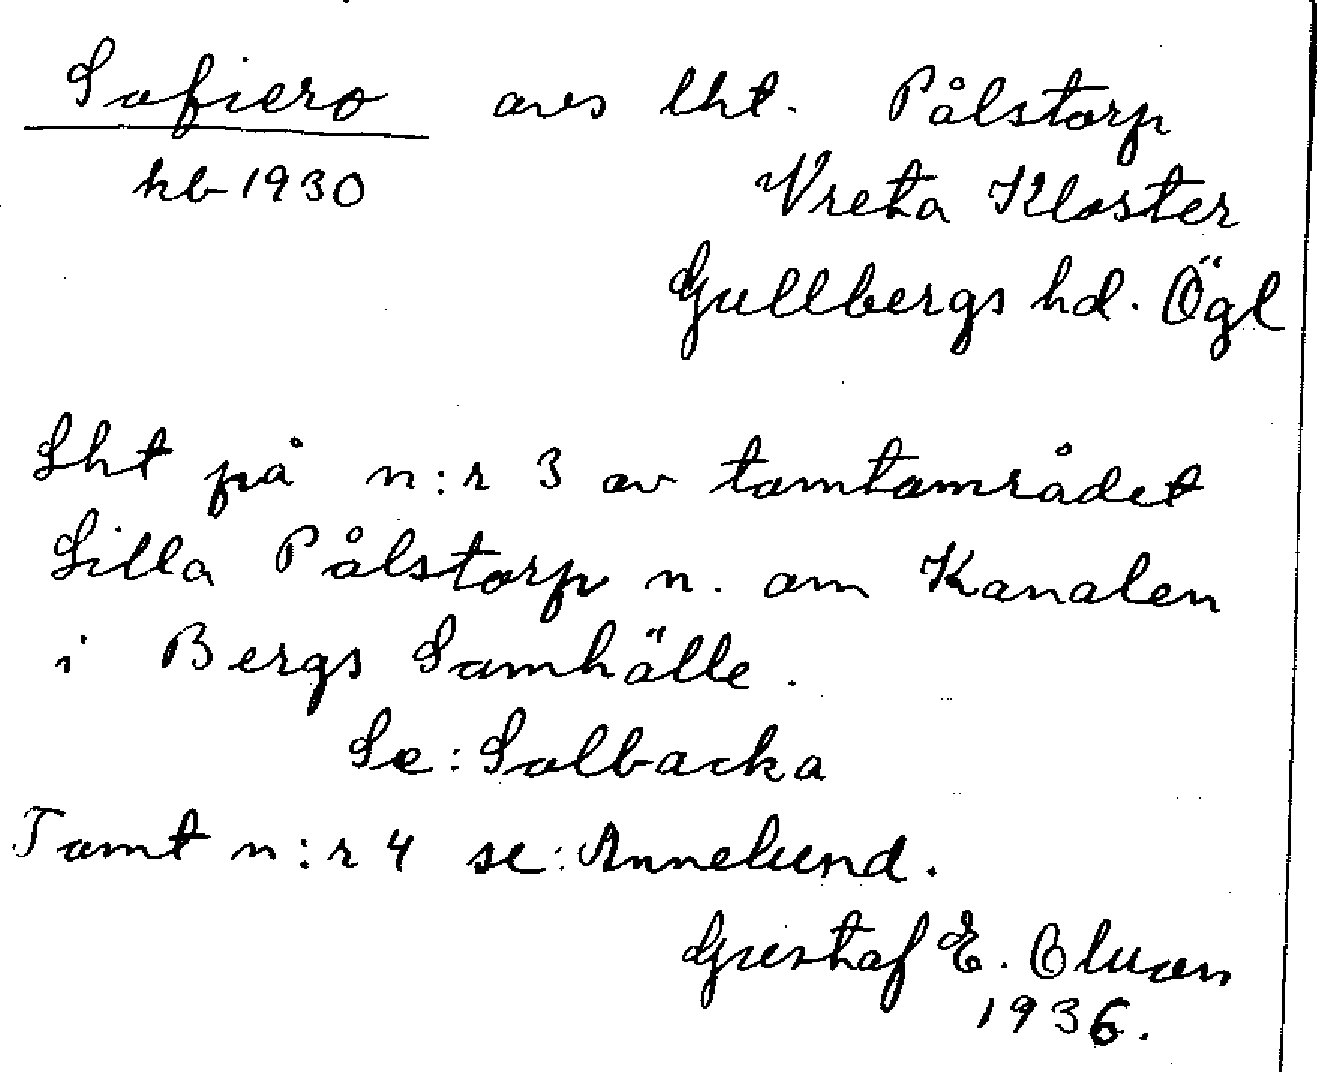 Sofiero avs lht. Pålstorp
hb 1930 Vreta Kloster
Gullbergs hd. Ögl
Lht på n:r 3 av tomtområdet
Lilla Pålstorp n. om Kanalen
i Bergs Samhälle.
Se: Solbacka
Tomt n:r 4 se: Annelund.
Gustaf E.
1936.